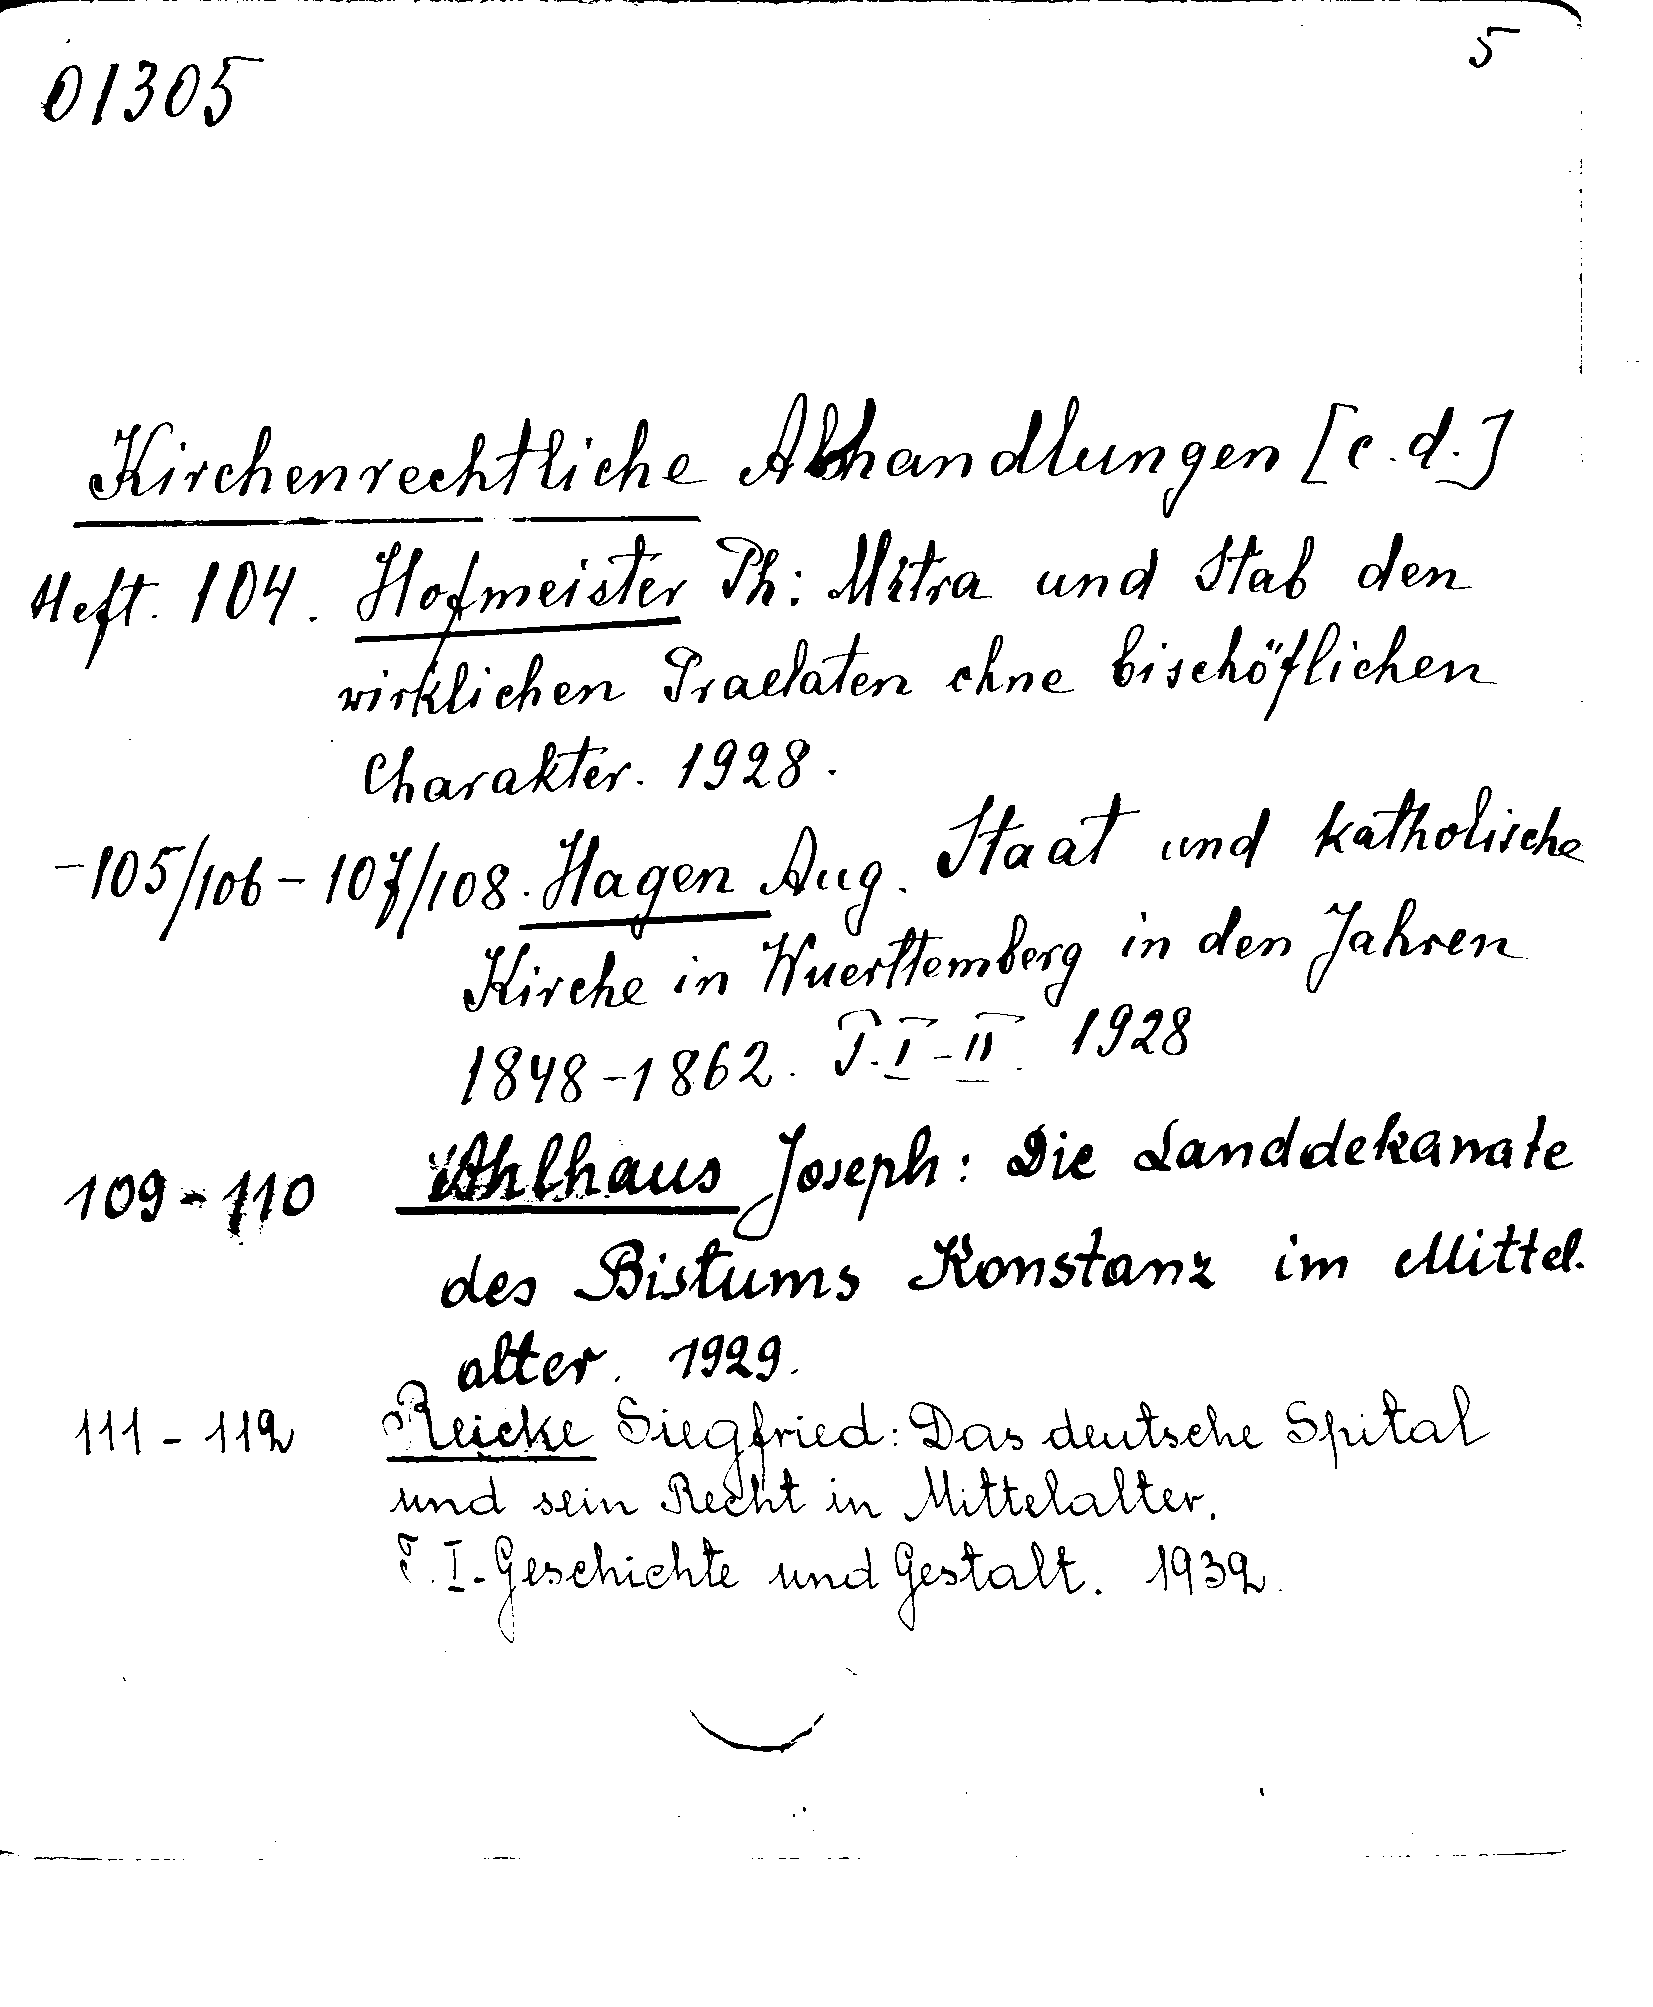 5
01305
Kirchenrechtliche Abhandlungen [c.d.]
Heft. 104. Hofmeister Ph: Mitra und Stab den
wirklichen Praelaten ohne bischöflichen
Charakter. 1928.
-105/106-107/108. Hagen Aug. Staat und katholische
Kirche in Wuerttemberg in den Jahren
1848-1862. T.I-II. 1928
109-110 Ahlhaus Joseph: Die Landdekanate
des Bistums Konstanz im Mittel.
alter. 1929.
111-112 Reicke Siegfried: Das deutsche Spital
und sein Recht in Mittelalter.
T.I-Geschichte und Gestalt. 1932.